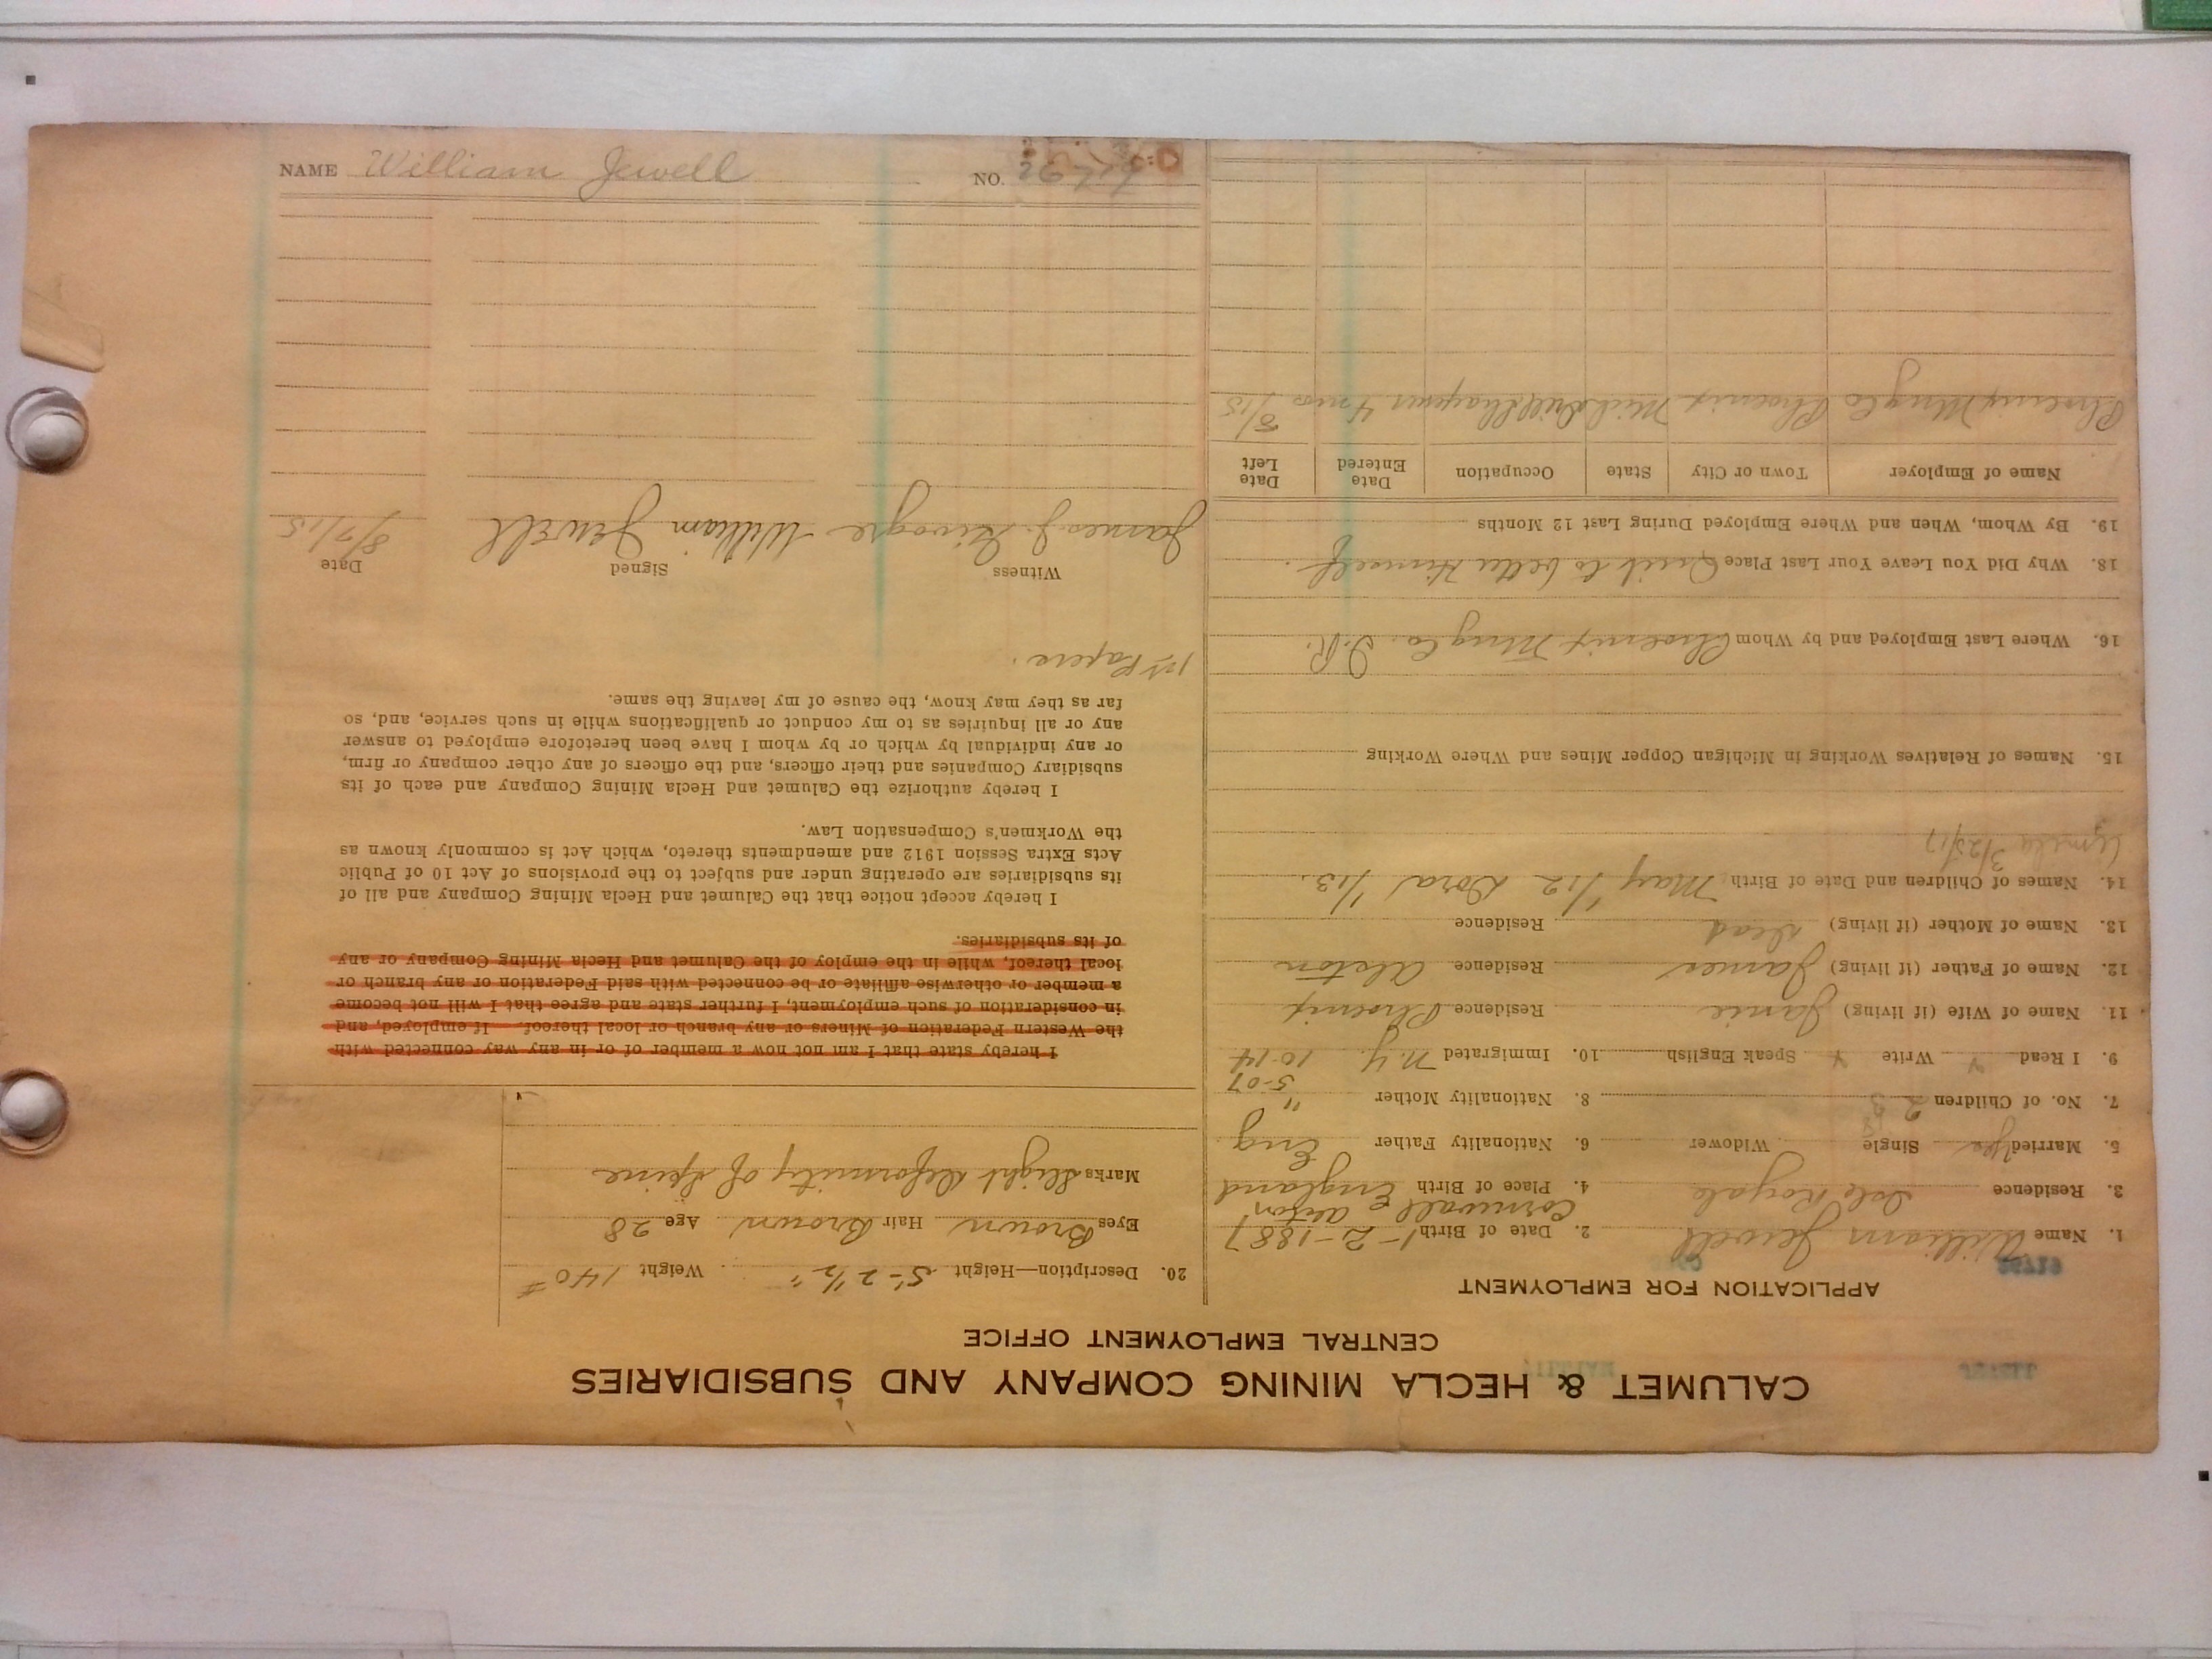 CALUMET & HECLA MINING COMPANY AND SUBSIDIARIES
CENTRAL EMPLOYMENT OFFICE
APPLICATION FOR EMPLOYMENT
1. Name William Jewell 2. Date of Birth 1-2-1887
Cornwall
3. Residence Isle Royale 4. Place of Birth England
5. Married Yes Single Widower 6. Nationality Father Eng
7. No. of Children 2 3 8. Nationality Mother "
5-07
9. I Read Y Write Y Speak English 10. Immigrated N.Y. 10-14
11. Name of Wife (if living) Janie Residence Phoenix
12. Name of Father (if living) James Residence
13. Name of Mother (if living) dead Residence
14. Names of Children and Date of Birth May 1/12 Dora 1/13
3/25/17
15. Names of Relatives Working in Michigan Copper Mines and Where Working
16. Where Last Employed and by Whom Phoenix Mng Co.
18. Why Did You Leave Your Last Place Quit to better Himself.
19. By Whom, When and Where Employed During Last 12 Months
Name of Employer Town or City State Occupation Date Entered Date Left
Phoenix Mng Co Phoenix Mich 4 mos 8/15
20. Description—Height 5-2 1/2" Weight 140#
Eyes Brown Hair Brown Age 28
Marks Slight deformity of Spine
I hereby state that I am not now a member of or in any way connected with
the Western Federation of Miners or any branch or local thereof. If employed, and
in consideration of such employment, I further state and agree that I will not become
a member or otherwise affiliate or be connected with said Federation or any branch or
local thereof, while in the employ of the Calumet and Hecla Mining Company or any
of its subsidiaries.
I hereby accept notice that the Calumet and Hecla Mining Company and all of
its subsidiaries are operating under and subject to the provisions of Act 10 of Public
Acts Extra Session 1912 and amendments thereto, which Act is commonly known as
the Workmen's Compensation Law.
I hereby authorize the Calumet and Hecla Mining Company and each of its
subsidiary Companies and their officers, and the officers of any other company or firm,
or any individual by which or by whom I have been heretofore employed to answer
any or all inquiries as to my conduct or qualifications while in such service, and, so
far as they may know, the cause of my leaving the same.
1st Papers.
Witness Signed Date
James J. William Jewell 8/7/15
NAME William Jewell NO.